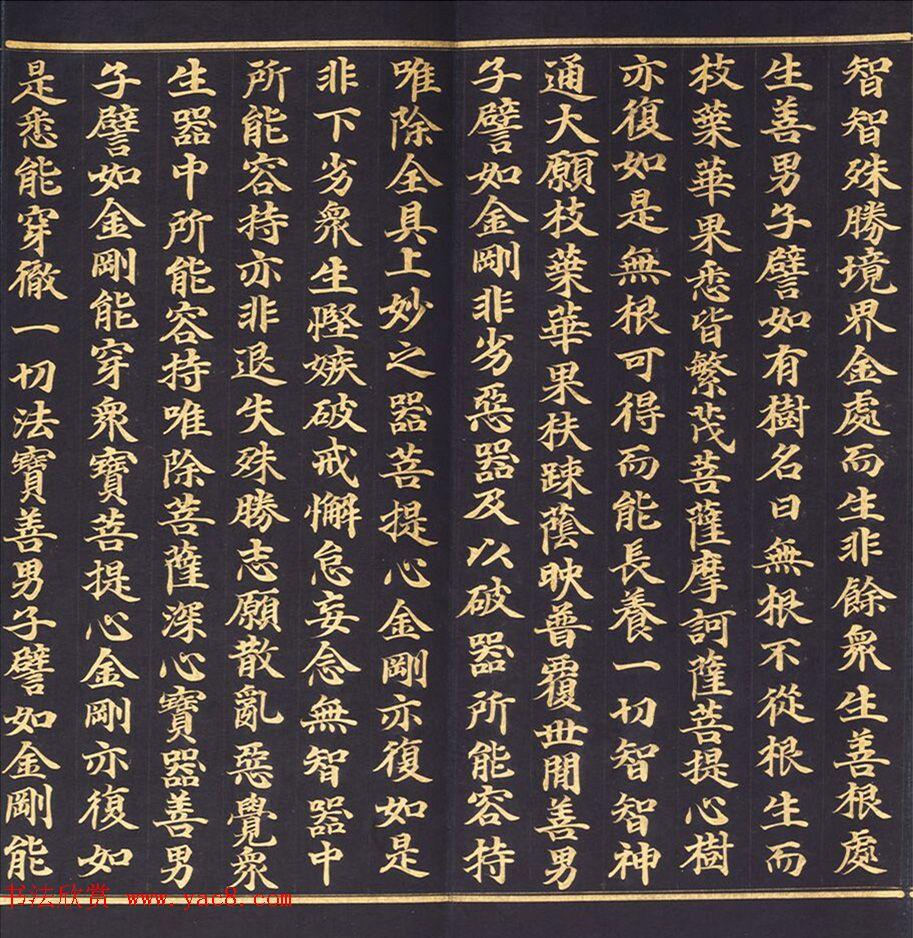 智智殊勝境界金處而生非餘衆生善根處
生善男子譬如有樹名曰無根不從根生而
枝葉華果悉皆繁茂菩薩摩訶薩菩提心樹
亦復如是無根可得而能長養一切智智神
通大願枝葉華果扶踈蔭映普覆世閒善男
子譬如金剛非劣惡器及以破器所能容持
唯除全具上妙之器菩提心金剛亦復如是
非下劣衆生慳嫉破戒懈怠妄念無智器中
所能容持亦非退失殊勝志願散亂惡覺衆
生器中所能容持唯除菩薩深心寶器善男
子譬如金剛能穿衆寶菩提心金剛亦復如
是悉能穿徹一切法寶善男子譬如金剛能
书法欣赏 www.yac8.com